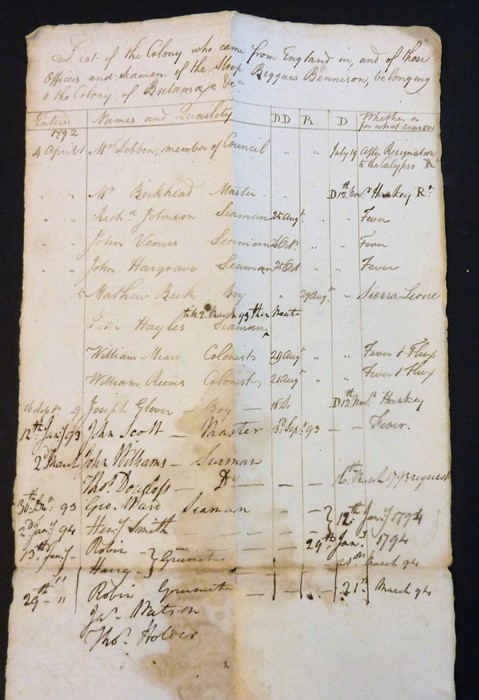 List of the Colony who came from England in, and of those
Officers and Seamen of the Sloop Beggars Bennison, belonging
to the Colony of Bulama, &c
Entries Names and Quality DD R D Whether or for what reason
1792
4 April Mr Dobbin, member of Council " " July 19 After Resignation to the Calypso R
" " Mr Birkhead Master " " D 12th Novr Hankey Rn
" " Richd Johnson Seaman 25 Augt " " Fever
" " John Venus Seaman Octr " " Fever
" " John Hargrave Seaman 25 Oct " " Fever
" 5 Mathew Beck Boy " 29 Augt " Sierra Leone
John Hayles Seaman till 2 March 93 then Mate
William Meare Colonists 24 Augt " " Fever & Flux
William Reeves Colonist 21 Augt " " Fever & Flux
16 Sept Joseph Glover Boy — 16 Do D 12th Novr Hankey
12th Jany 93 John Scott — Master 3d Septr 93 — — Fever.
2d March John Williams — Seaman
Thos Douglass — Do — — 16th March 1793
30th 93 Geo. Ward Seaman — — } 12th Jany 1794
2d Jany 94 Heny Smith — — —
13th Jany Robin — } Grumetts — 29th Jany 1794
" Harry — — — March 94
29th " Robin Grumett — — — 21st March 94
Jas Watson
Thos Holder